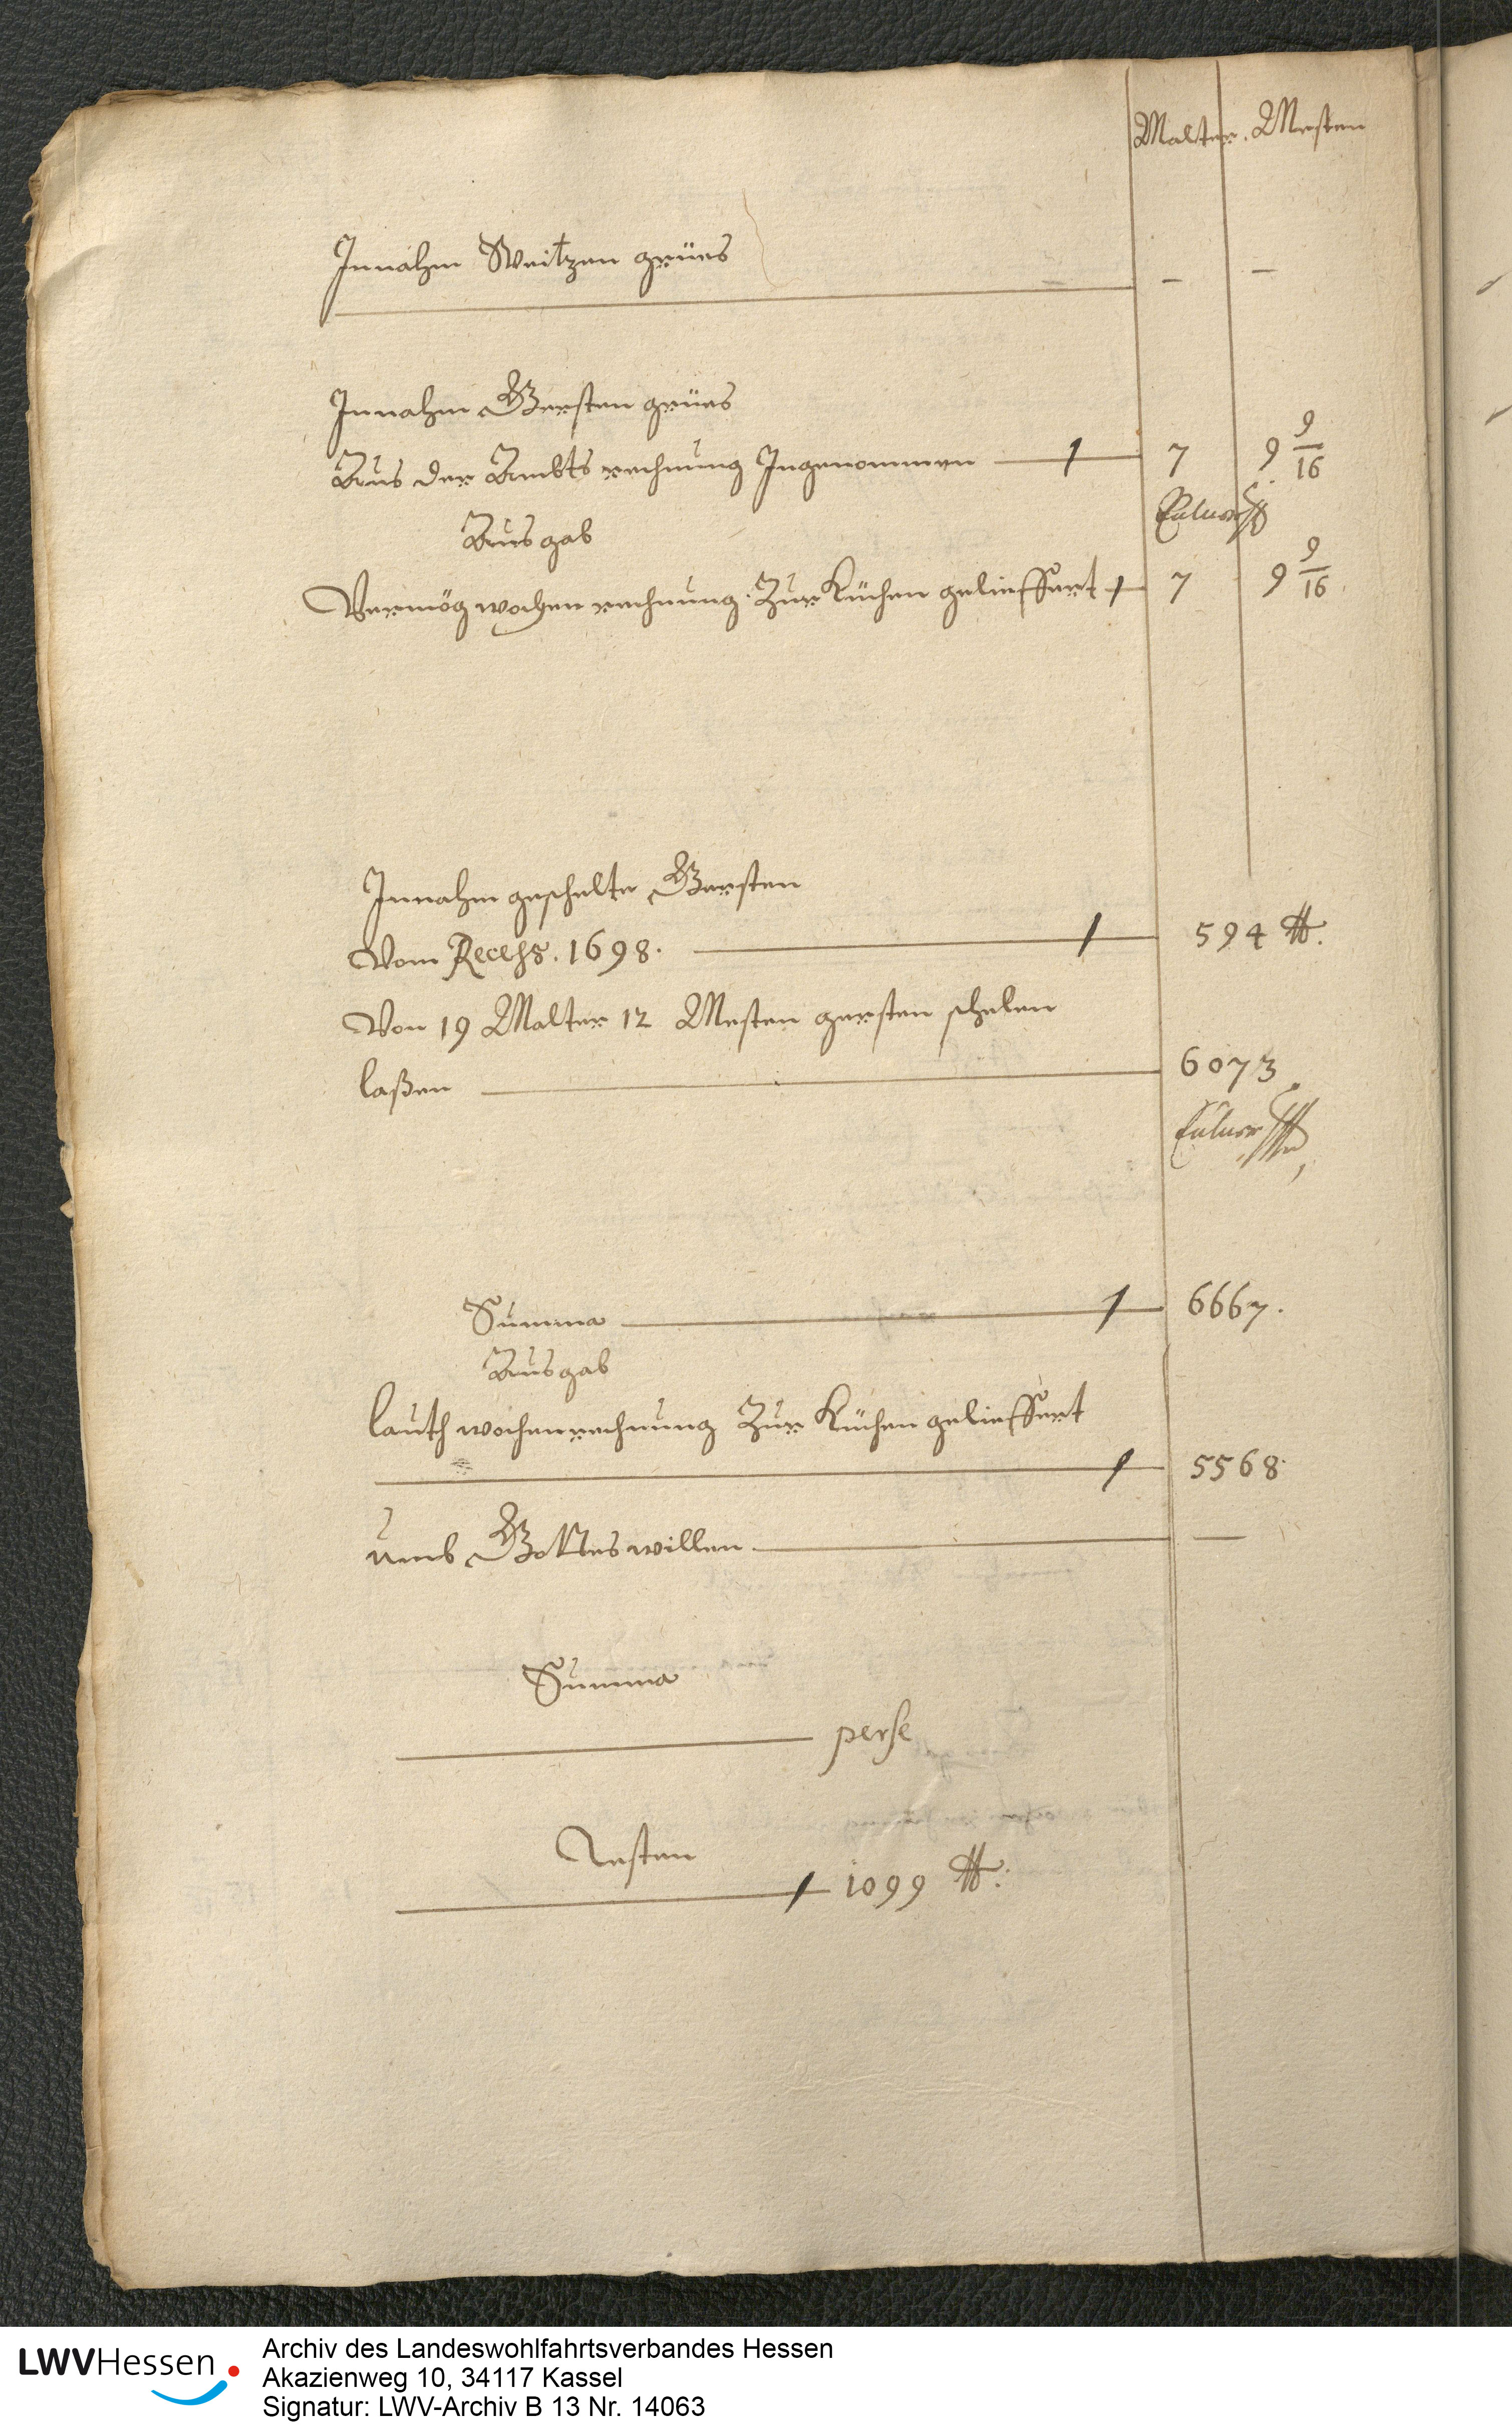 Malter. Mesten
Innahm Weitzen grües — —
Innahm Gersten grües
Aus der Ambts rechnung Ingenommen 7 9 9/16
Ausgab
Vermög wochen rechnung. Zur Küchen gelieffert 7 9 9/16
Innahm geschelte Gersten
Vom Recess. 1698. 594 ℔.
Von 19 Malter 12 Mesten gersten schelen
laßen 6073
Summa 6667.
Ausgab
lauth wochenrechnung Zur Küchen gelieffert
5568
umb Gottes willen —
Summa
perse
Resten
1099 ℔.
LWVHessen
Archiv des Landeswohlfahrtsverbandes Hessen
Akazienweg 10, 34117 Kassel
Signatur: LWV-Archiv B 13 Nr. 14063